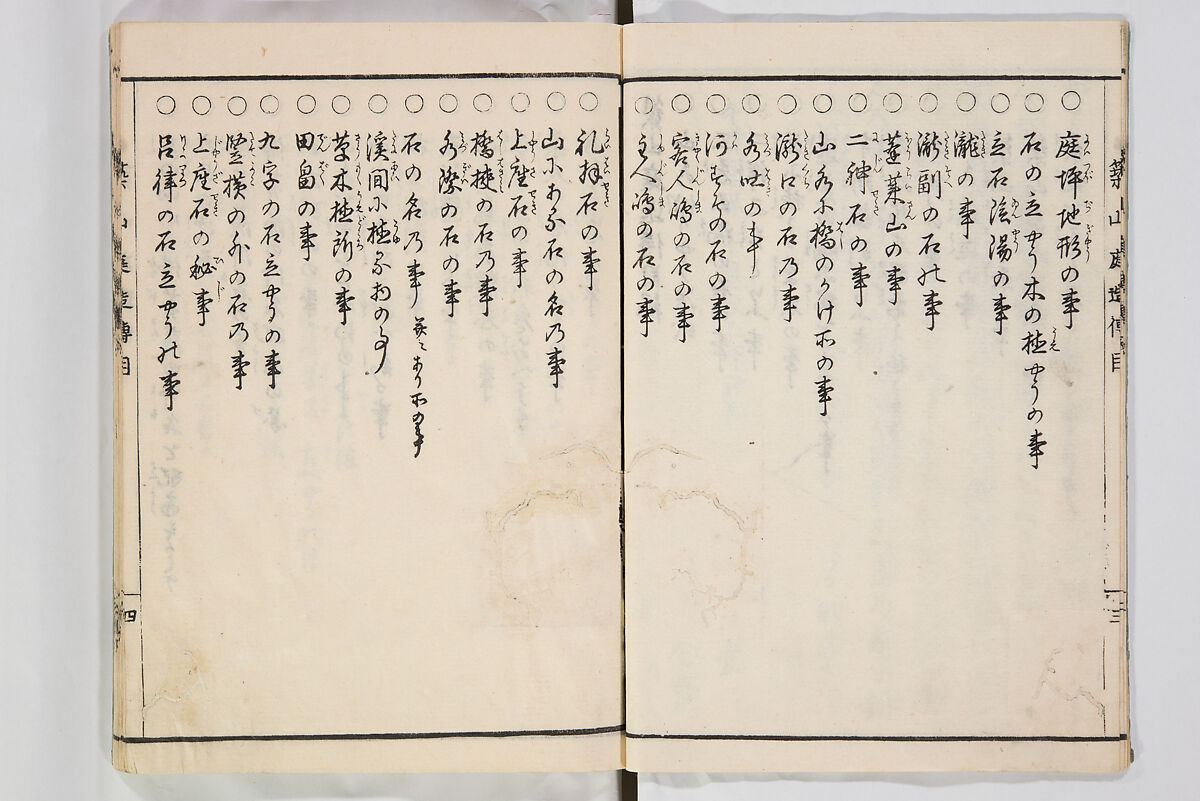 築山庭造傳目
○庭坪地形の事
○石の立やう木の植やうの事
○立石陰陽の事
○瀧の事
○瀧副の石の事
○蓬莱山の事
○二神石の事
○山水に橋のかけ所の事
○瀧口の石乃事
○水吐の事
○河すその石の事
○客人嶋の石の事
○主人嶋の石の事
三
○礼拝石の事
○山にある石の名乃事
○上座石の事
○橋挟の石乃事
○水際の石の事
○石の名乃事
○渓間に植る物の事
○草木植所の事
○田畠の事
○九字の石立やうの事
○竪横の外の石乃事
○上座石の秘事
○呂律の石立やうの事
築山庭造傳目
四